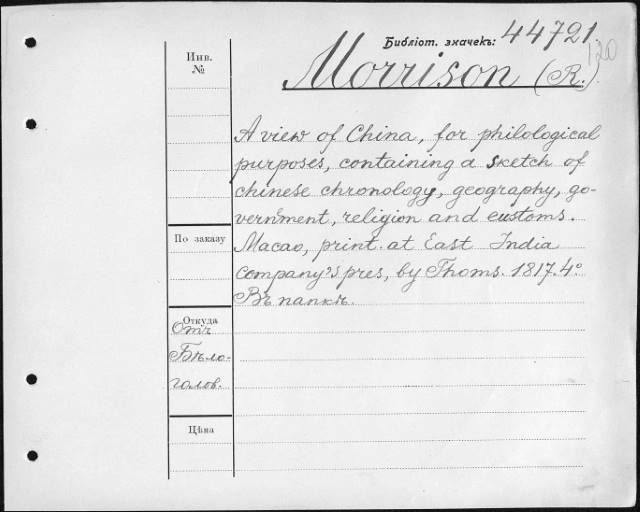 Библіот. значекъ: 44721.
120
Инв.
№
Morrison (R.)
A view of China, for philological
purposes, containing a sketch of
chinese chronology, geography, go-
vernment, religion and customs.
По заказу
Macao, print. at East India
company's pres, by Thoms. 1817. 4°
Въ папкѣ.
Откуда
Отъ
Бѣло-
голов.
Цѣна